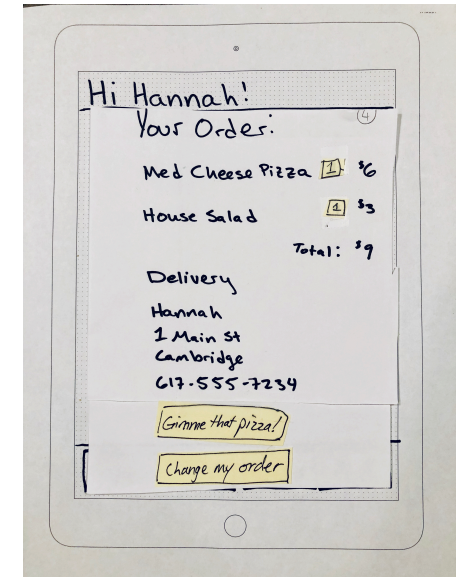 Hi Hannah!
4
Your Order:
Med Cheese Pizza 1 $6
House Salad 1 $3
Total: $9
Delivery
Hannah
1 Main St
Cambridge
617-555-7234
Gimme that pizza!
Change my order